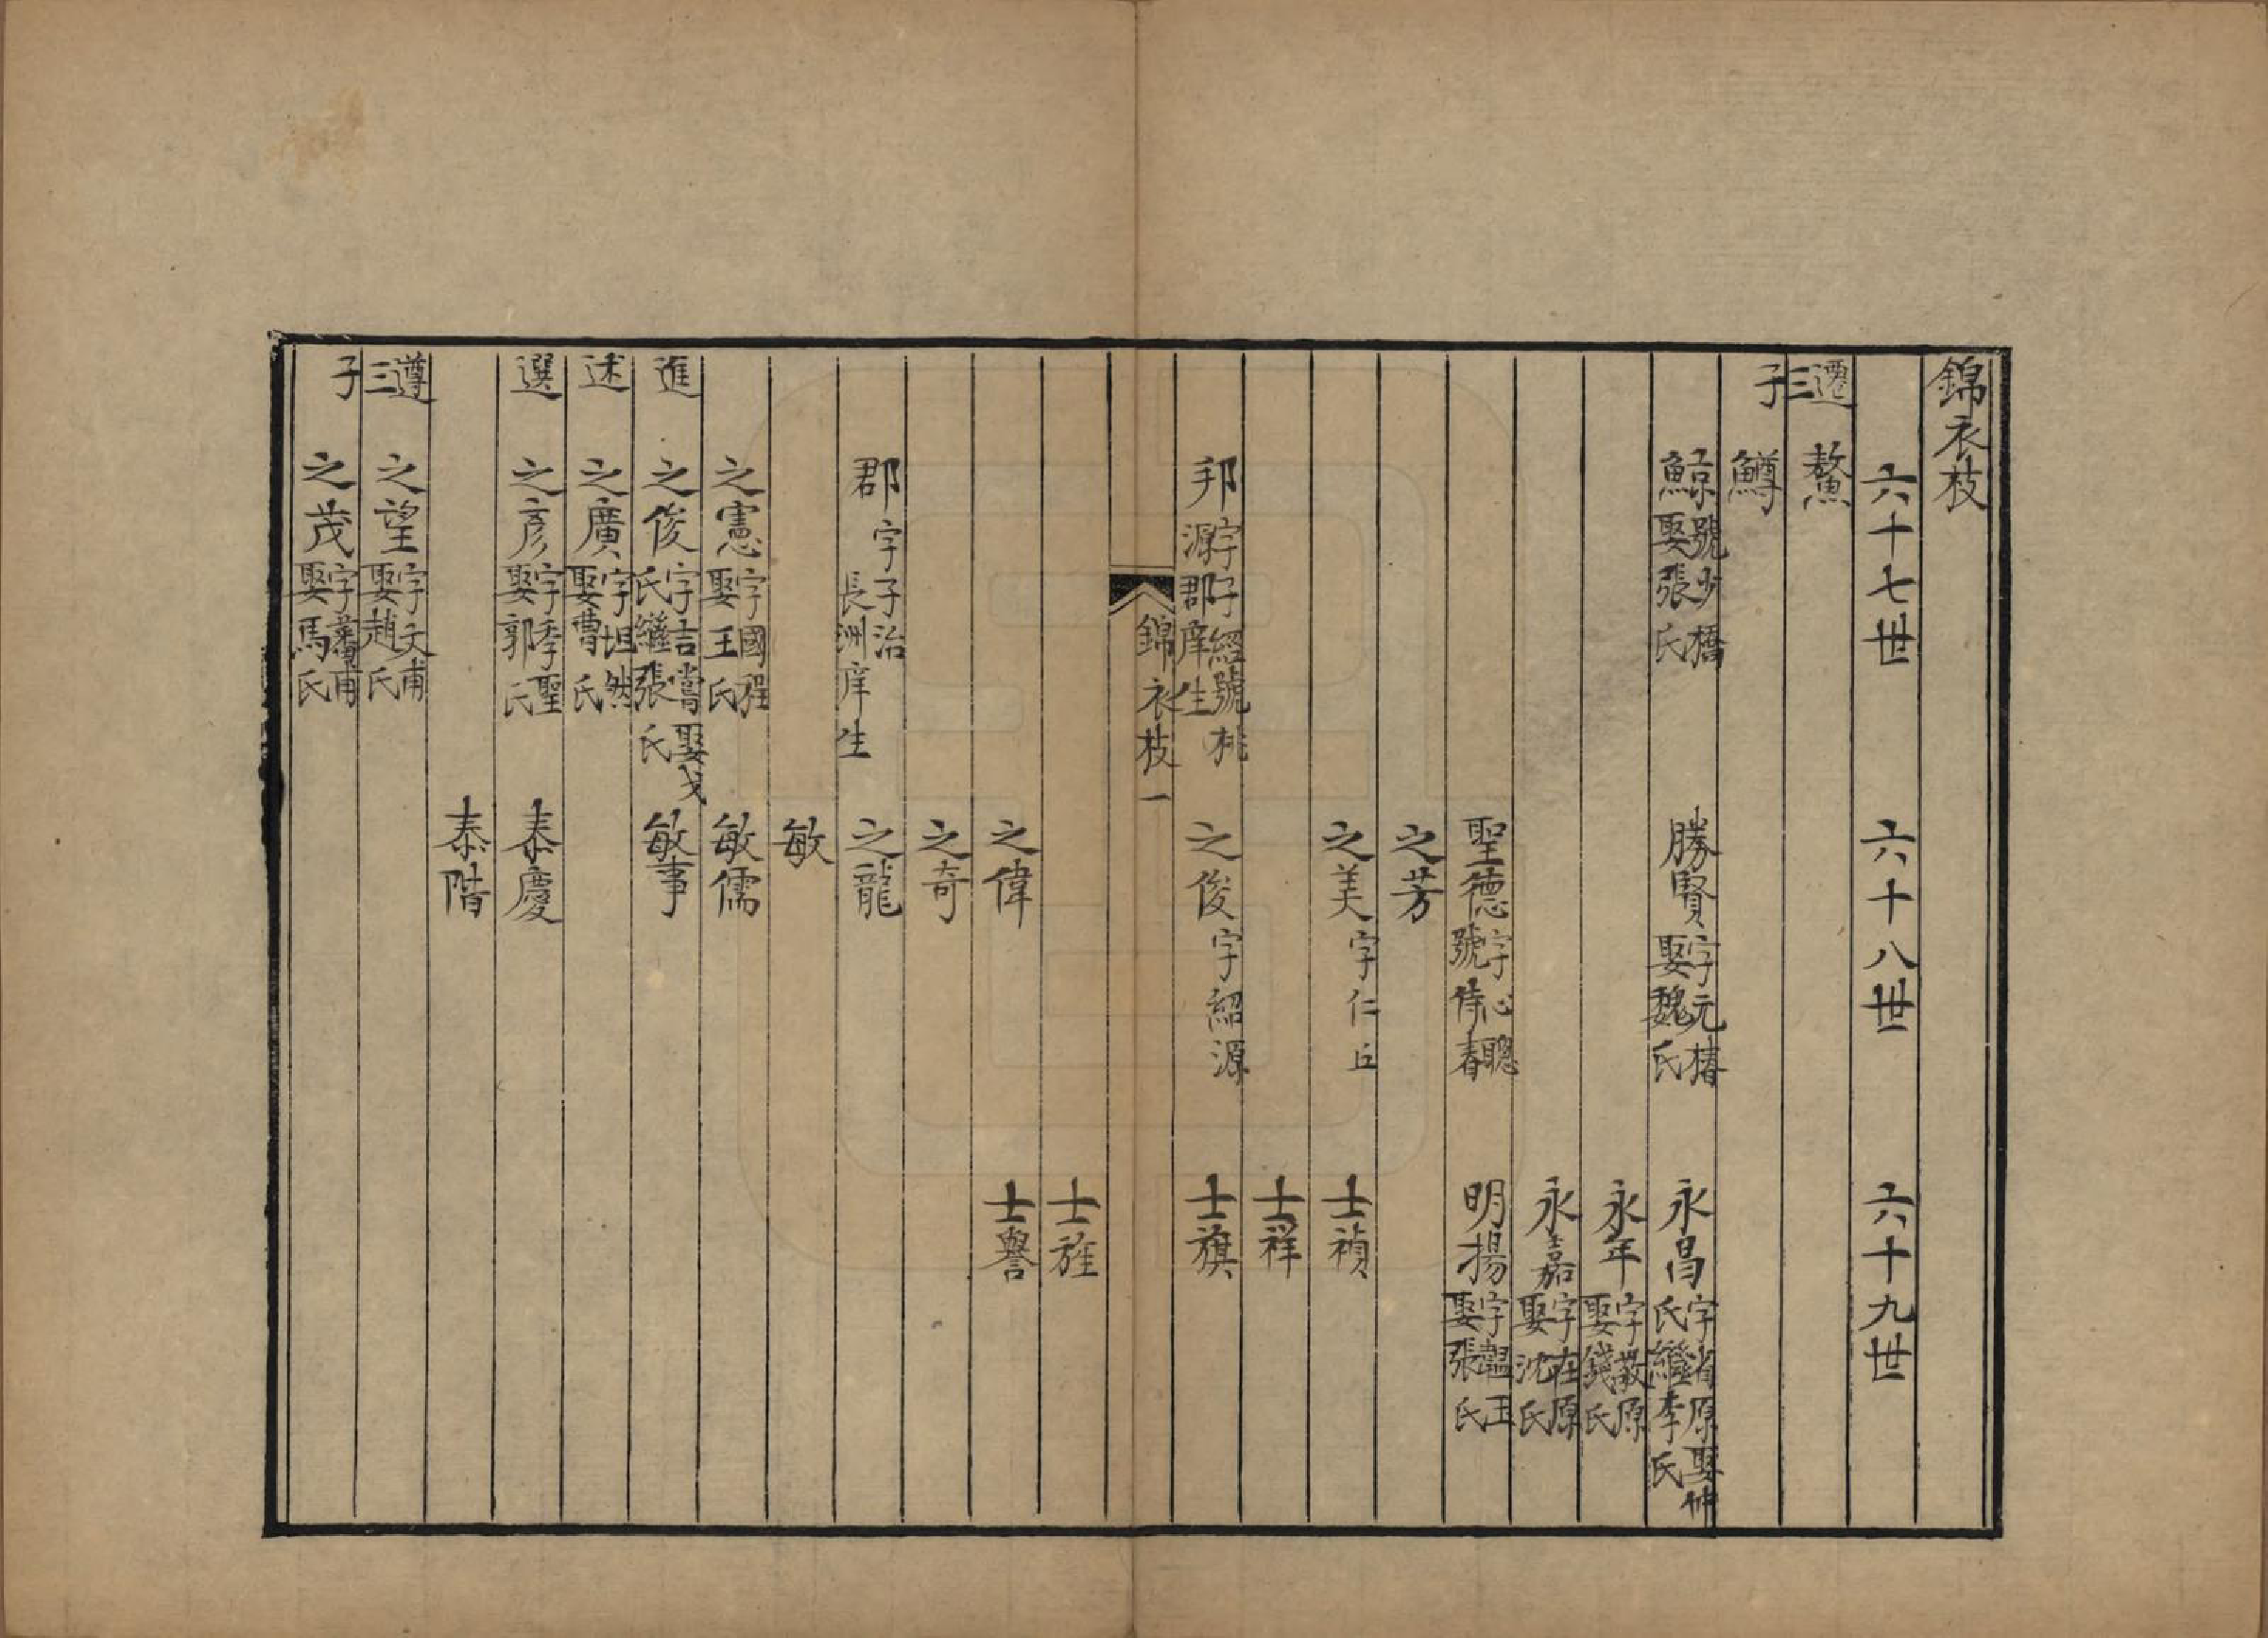 錦衣枝
六十七世 六十八世 六十九世
遷三 鰲
子 鱒
鯨 號少橋 娶張氏 勝賢 字元椿 娶魏氏 永昌 字省原 娶 氏 繼李氏
永年 字敬原 娶錢氏
永嘉 字在原 娶沈氏
聖德 字心聰 號侍春 明揚 字韞玉 娶張氏
之芳
之美 字仁丘 士禎
士祥
邦 字子經 號桃源 郡庠生 之俊 字紹源 士旗
錦衣枝 一
士旌
之偉 士譽
之奇
郡 字子治 長洲庠生 之龍
敏
之憲 字國程 娶王氏 敏儒
進 之俊 字吉嘗 娶戈氏 繼張氏 敏事
述 之廣 字坦然 娶曹氏
選 之彥 字季聖 娶郭氏 泰慶
泰階
遵三 之望 字文甫 娶趙氏
子 之茂 字蕃甫 娶馬氏